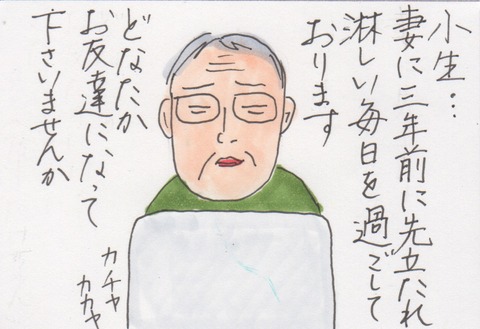 小生‥
妻に三年前に先立たれ
淋しい毎日を過ごして
おります
どなたか
お友達になって
下さいませんか
カチャ
カカャ